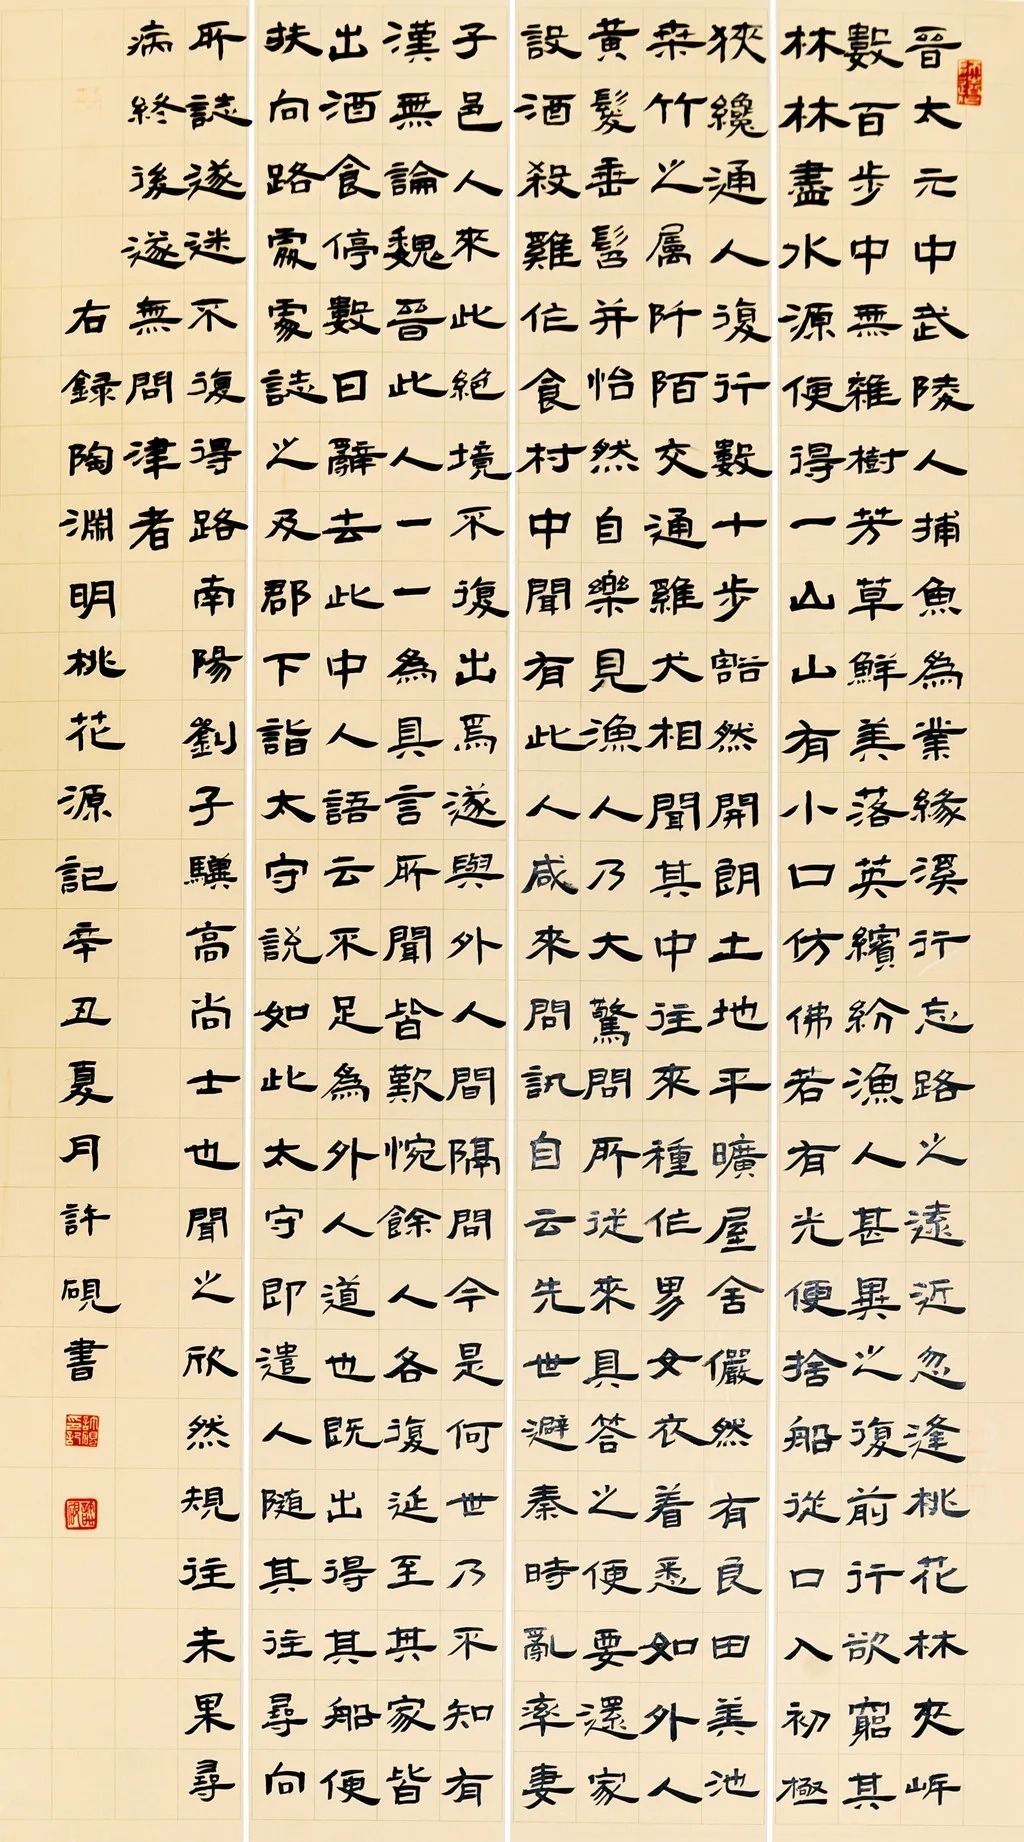 晉太元中武陵人捕魚為業緣溪行忘路之遠近忽逢桃花林夾岸
數百步中無雜樹芳草鮮美落英繽紛漁人甚異之復前行欲窮其
林林盡水源便得一山山有小口仿佛若有光便捨船從口入初極
狹纔通人復行數十步豁然開朗土地平曠屋舍儼然有良田美池
桑竹之屬阡陌交通雞犬相聞其中往來種作男女衣着悉如外人
黃髮垂髫并怡然自樂見漁人乃大驚問所從來具答之便要還家
設酒殺雞作食村中聞有此人咸來問訊自云先世避秦時亂率妻
子邑人來此絕境不復出焉遂與外人間隔問今是何世乃不知有
漢無論魏晉此人一一為具言所聞皆歎惋餘人各復延至其家皆
出酒食停數日辭去此中人語云不足為外人道也既出得其船便
扶向路處處誌之及郡下詣太守說如此太守即遣人隨其往尋向
所誌遂迷不復得路南陽劉子驥高尚士也聞之欣然規往未果尋
病終後遂無問津者
右錄陶淵明桃花源記辛丑夏月許硯書